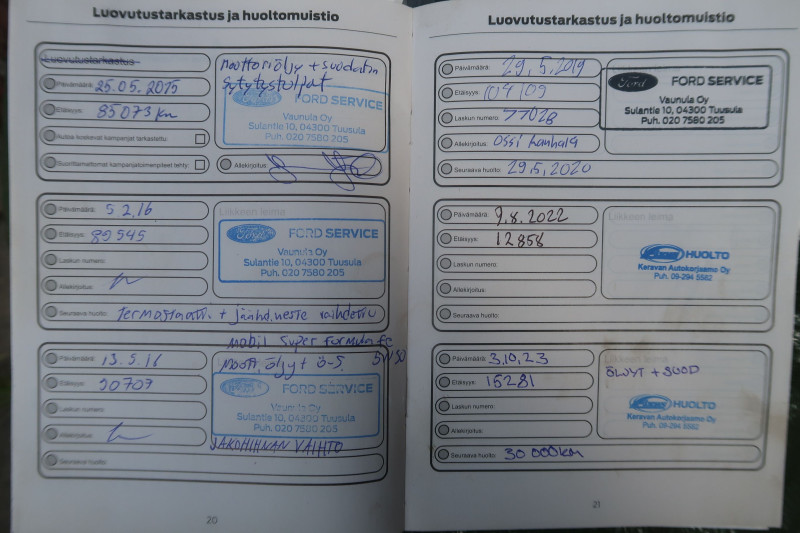 Luovutustarkastus ja huoltomuistio
Luovutustarkastus
Päivämäärä: 25.05.2015
Etäisyys: 85073 km
Autoa koskevat kampanjat tarkastettu:
Suorittamattomat kampanjatoimenpiteet tehty:
moottoriöljy + suodatin
sytytystulpat
Ford FORD SERVICE
Vaunula Oy
Sulantie 10, 04300 Tuusula
Puh. 020 7580 205
Allekirjoitus:
Päivämäärä: 5 2.16
Etäisyys: 89545
Laskun numero:
Allekirjoitus:
Liikkeen leima
Ford FORD SERVICE
Vaunula Oy
Sulantie 10, 04300 Tuusula
Puh. 020 7580 205
Seuraava huolto: Termostaatti + jäähd.neste vaihdettu
mobil super formula fe
5W30
Päivämäärä: 13.5.16
Etäisyys: 90709
Laskun numero:
Allekirjoitus:
Seuraava huolto:
moott.öljy + ö-s.
Ford FORD SERVICE
Vaunula Oy
Sulantie 10, 04300 Tuusula
Puh. 020 7580 205
JAKOHIHNAN VAIHTO
20
Luovutustarkastus ja huoltomuistio
Päivämäärä: 29.5.2019
Etäisyys: 104109
Laskun numero: 77028
Allekirjoitus: Ossi
Seuraava huolto: 29.5.2020
Ford FORD SERVICE
Vaunula Oy
Sulantie 10, 04300 Tuusula
Puh. 020 7580 205
Päivämäärä: 9.8.2022
Etäisyys: 12858
Laskun numero:
Allekirjoitus:
Seuraava huolto:
Liikkeen leima
HUOLTO
Keravan Autokorjaamo Oy
Puh. 09-294 5582
Päivämäärä: 3.10.23
Etäisyys: 15281
Laskun numero:
Allekirjoitus:
Seuraava huolto: 30 000km
Liikkeen leima
ÖLJYT + SUOD
HUOLTO
Keravan Autokorjaamo Oy
Puh. 09-294 5582
21